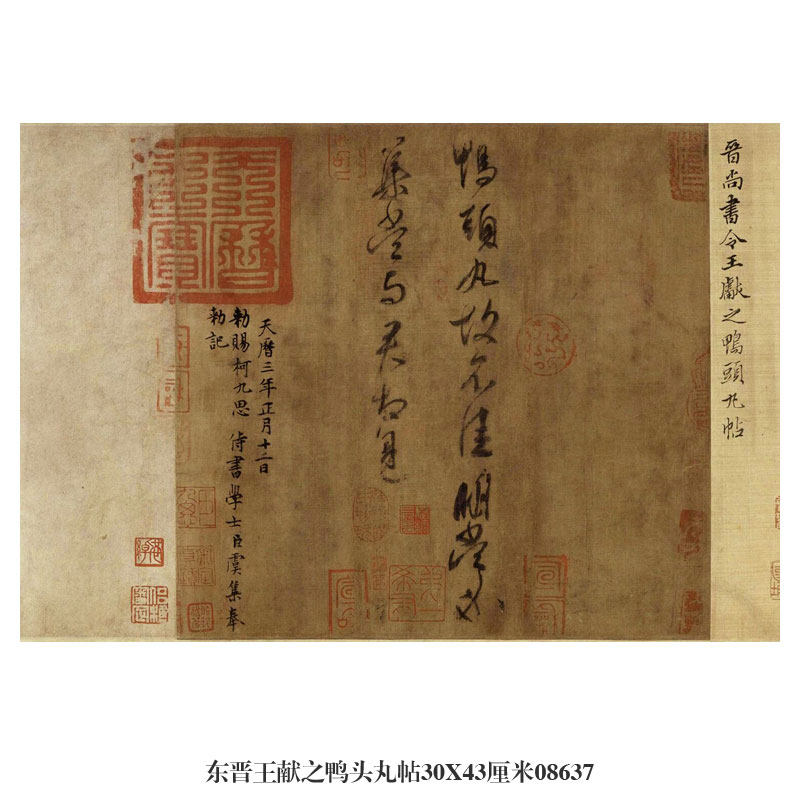 晉尚書令王獻之鴨頭丸帖
鴨頭丸故不佳明當必
集當與君相見
天曆之寶
天曆三年正月十二日
勅賜柯九思 侍書學士臣虞集奉
勅記
东晋王献之鸭头丸帖30X43厘米08637